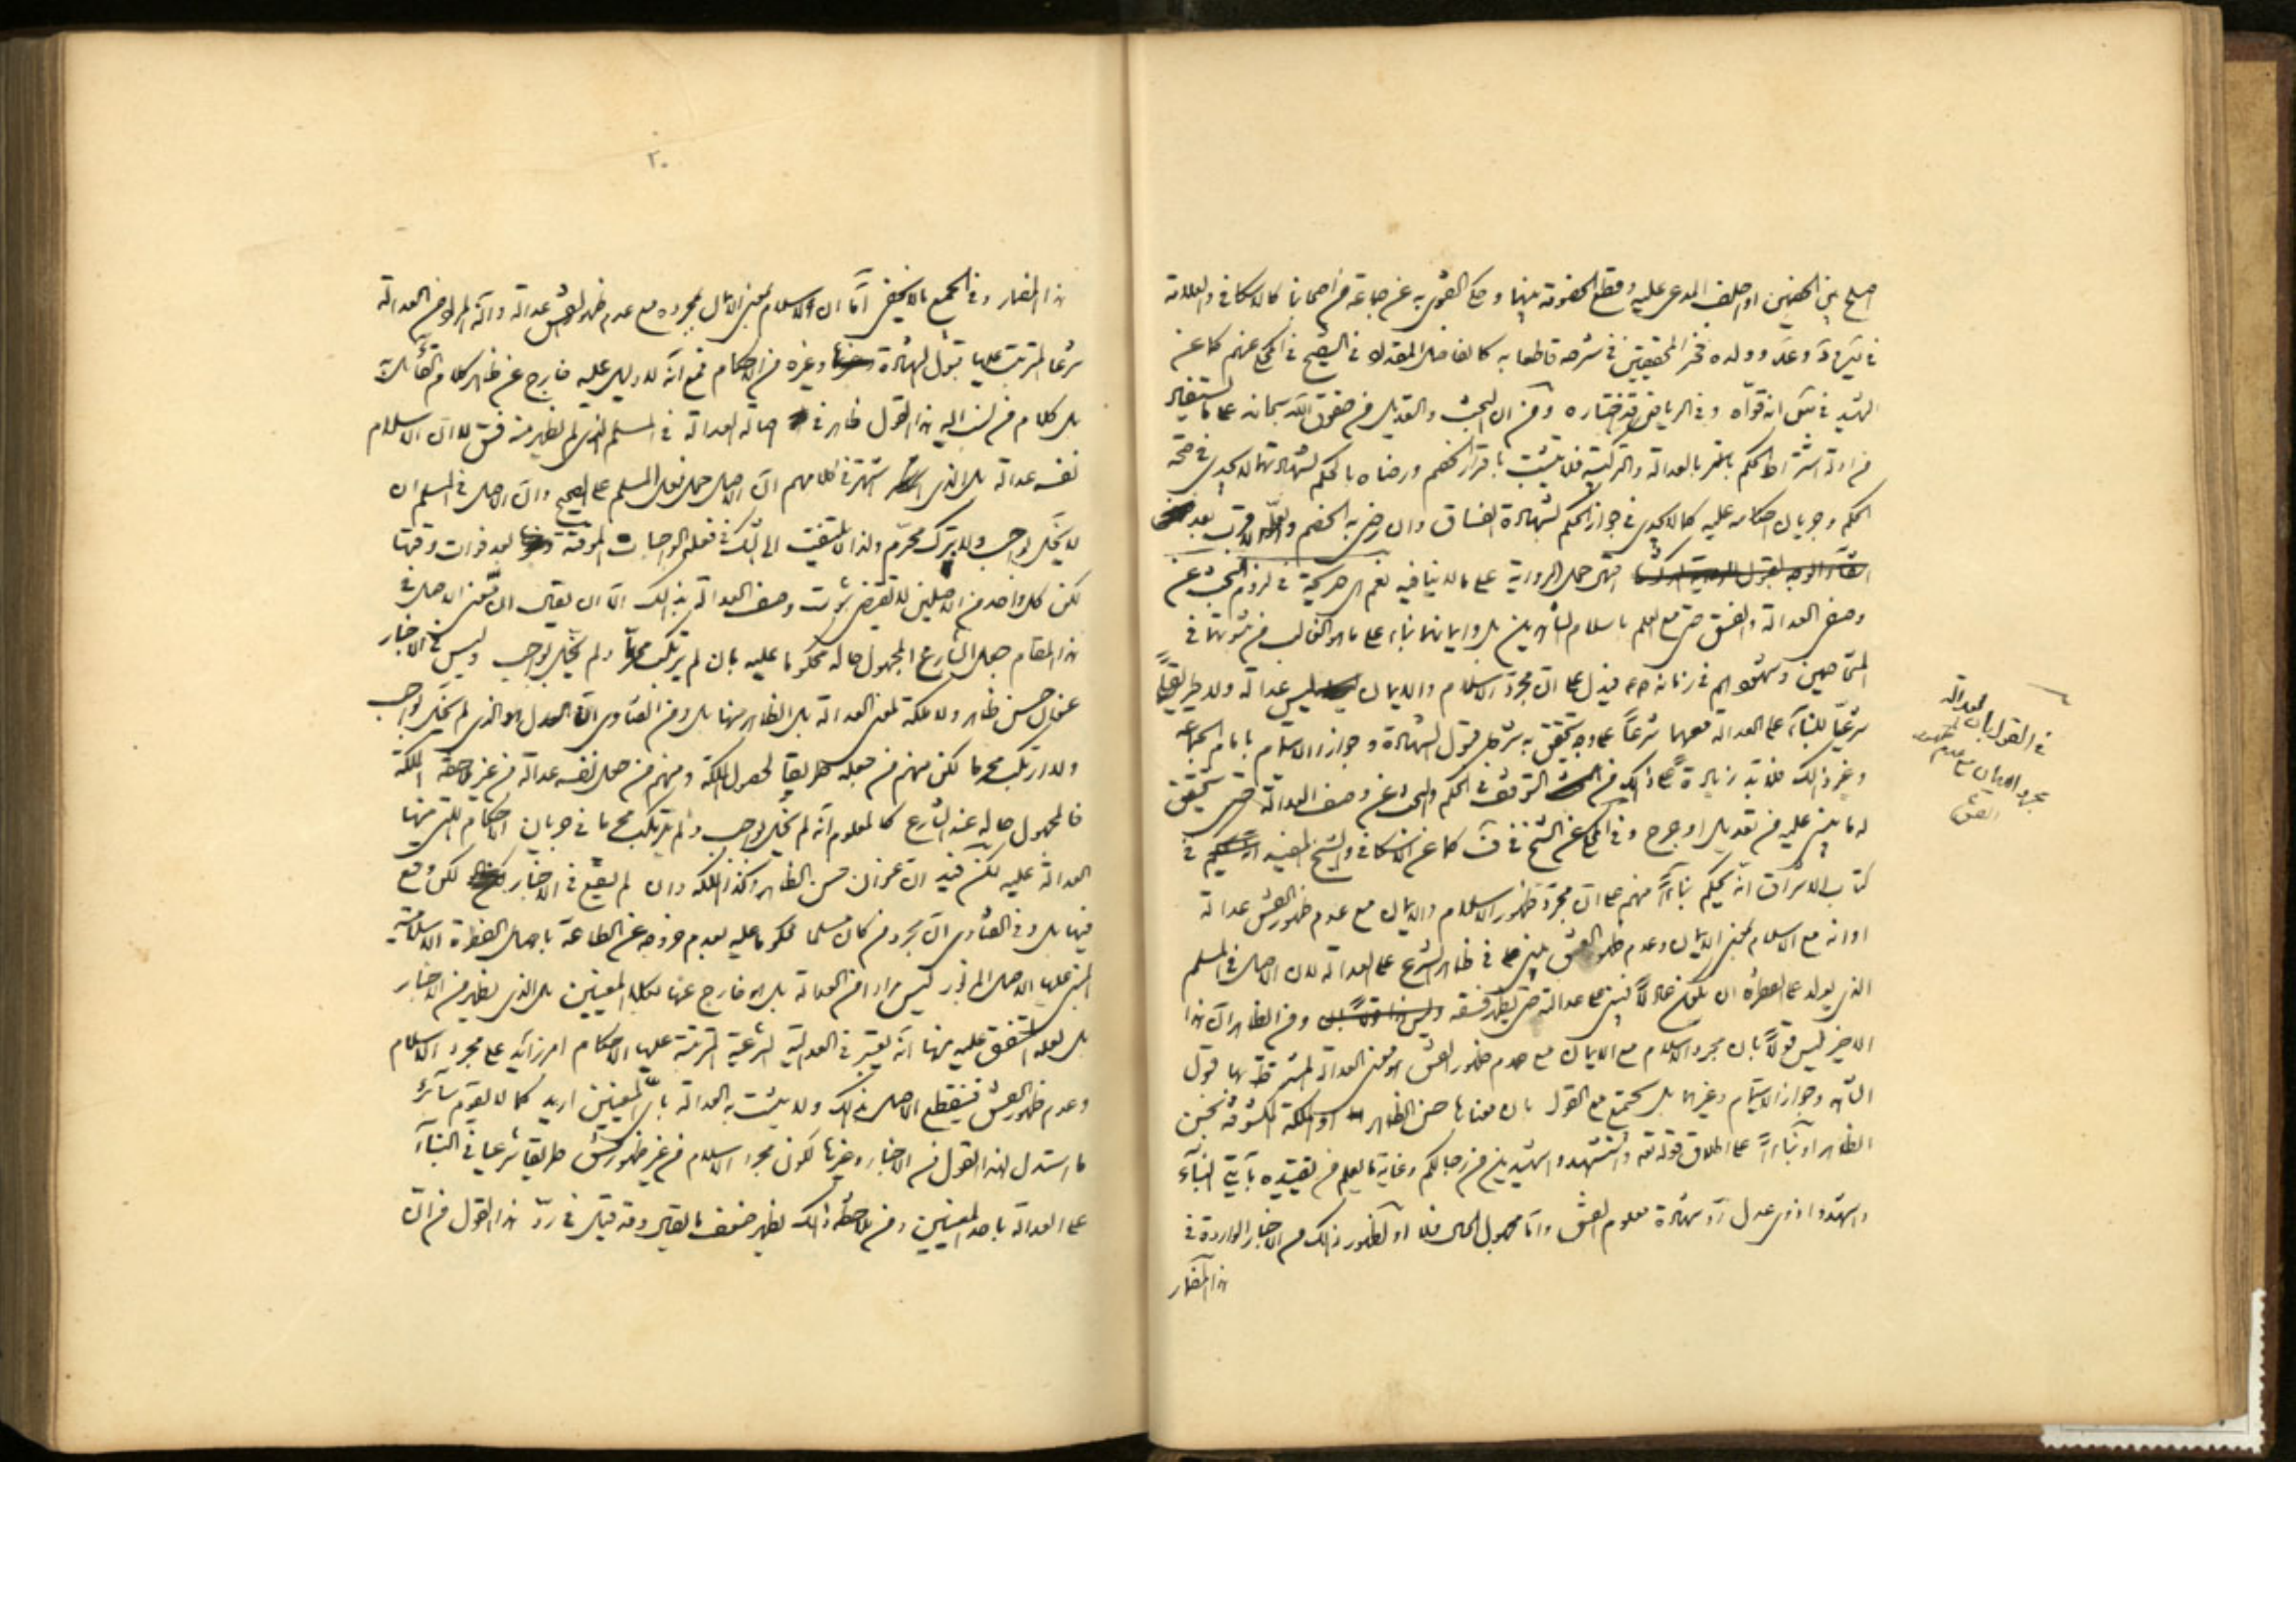 اصلح بين الخصمين او احلف المدعى عليه وقطع الخصومة بينهما وحكى القول به عن جماعة من أصحابنا كالاسكافي والعلامة
في وولده فخر المحققين في شرحه قاطعا به كالفاضل المقداد في التنقيح في المحكي عنهم كما عن
الشهيد في انه قواه وفي الرياض قد اختاره ومن ان البحث والتعديل من حقوق الله سبحانه على ما يستفاد
من ادلة اشتراط الحكم بالعدالة والتزكية فلا يثبت باقرار الخصم ورضاه بالحكم لشهادتهما لا يجدى في صحة
الحكم وجريان احكامه عليه كما لا يجدى في جواز الحكم بشهادة الفساق وان رضى به الخصم ولعله الاقرب بعد
حمل الرواية على ما لا ينافيه نعم هي صريحة في لزوم البحث عن
وصف العدالة والفسق حتى مع العلم باسلام الشاهدين بل وايمانهما بناء على ما هو الغالب من ثبوتهما في
المتخاصمين وشهودهم في زمانه ص فيدل على ان مجرد الاسلام والايمان ليس عدالة ولا طريقاً
شرعيّا للبناء على العدالة معهما شرعاً على وجه يتحقق به شرط قبول الشهادة وجواز الايتمام بامام الجماعة
وغير ذلك فلا بد زيادة على ذلك من التوقف في الحكم والبحث عن وصف العدالة حتى يتحقق
له ما يبنى عليه من تعديل او جرح وفي المحكي عن الشيخ في ف كما عن الاسكافي والشيخ المفيد في
كتاب الاشراق انه يحكم بناءً منهم على ان مجرد ظهور الاسلام والايمان مع عدم ظهور الفسق عدالة
او انه مع الاسلام بمعنى الايمان وعدم ظهور الفسق يبنى في ظاهر الشرع على العدالة لان الاصل في المسلم
الذى يولد على الفطرة ان يكون عادلاً فيبنى على عدالته حتى يظهر فسقه ومن الظاهر ان هذا
الاخير ليس قولاً بان مجرد الاسلام مع الايمان مع عدم ظهور الفسق هو معنى العدالة المشترطة بها قبول
الشهادة وجواز الايتمام وغيرهما بل يجتمع مع القول بان معناها حسن الظاهر او الملكة المكشوفة بحسن
الظاهر او بناءً على اطلاق قوله تعالى واستشهدوا شهيدين من رجالكم وغاية ما يعلم من تقييده بآيتي النبأ
واشهدوا ذوى عدل رد شهادة معلوم الفسق واما مجهول الحال فلا او لظهور ذلك من الاخبار الواردة في
هذا المضمار
في القول بان العدالة
مجرد الايمان مع عدم ظهور
الفسق
٢٠
هذا المضمار وفي الجميع ما لا يخفى اما ان الاسلام بمعنى الايمان بمجرده مع عدم ظهور الفسق عدالة وانه المراد من العدالة
شرعا المترتب عليها قبول الشهادة وغيره من الاحكام فمع انه لا دليل عليه خارج عن ظاهر كلام القائل
بل كلام من نسب اليه هذا القول ظاهر في اصالة العدالة في المسلم الذى لم يظهر منه فسق لا ان الاسلام
نفسه عدالة بل الذى اشتهر في كلامهم ان الاصل حمل فعل المسلم على الصحيح وان الاصل في المسلم ان
لا يخل بواجب ولا يترك محرّم ولذا لا يلتفت الى الشك في فعله الواجبات الموقتة بعد فوات وقتها
لكن كل واحد من الاصلين لا يقتضى ثبوت وصف العدالة بذلك الا ان يقال ان معنى الاصل في
هذا المقام جعل الشارع المجهول حاله محكوما عليه بان لم يرتكب محرّما ولم يخل بواجب وليس في الاخبار
عنوان حسن ظاهر ولا ملكة لمعنى العدالة بل الظاهر منها بل ومن الفتاوى ان العدل هو الذى لم يخل بواجب
ولا ارتكب محرما لكن منهم من جعله طريقا لحصول الملكة ومنهم من جعل نفسه عدالة من غير ملاحظة الملكة
فالمجهول حاله عند الشارع كالمعلوم انه لم يخل بواجب ولم يرتكب محرما في جريان الاحكام التي منها
العدالة عليه لكن فيه ان عنوان حسن الظاهر وكذا الملكة وان لم يقع في الاخبار لكن وقع
فيها بل وفي الفتاوى ان مجرد من كان مسلما محكوما عليه بعدم خروجه عن الطاعة باصل الفطرة الاسلامية
المبنى عليها الاصل المزبور ليس مرادا من العدالة بل هو خارج عنها بكلا المعنيين بل الذى يظهر من الاخبار
بل لعله المتفق عليه منها انه يعتبر في العدالة الشرعية المترتبة عليها الاحكام امر زائد على مجرد الاسلام
وعدم ظهور الفسق فينقطع الاصل بذلك ولا يثبت به العدالة باى المعنيين اريد كما لا يقوم سائر
ما استدل لهذا القول من الاخبار وغيرها لكون مجرد الاسلام من غير ظهور فسق طريقا شرعيا في البناء
على العدالة باحد المعنيين ومن ملاحظة ذلك يظهر ضعف ما يقال وقد قيل في ردّ هذا القول من انّ